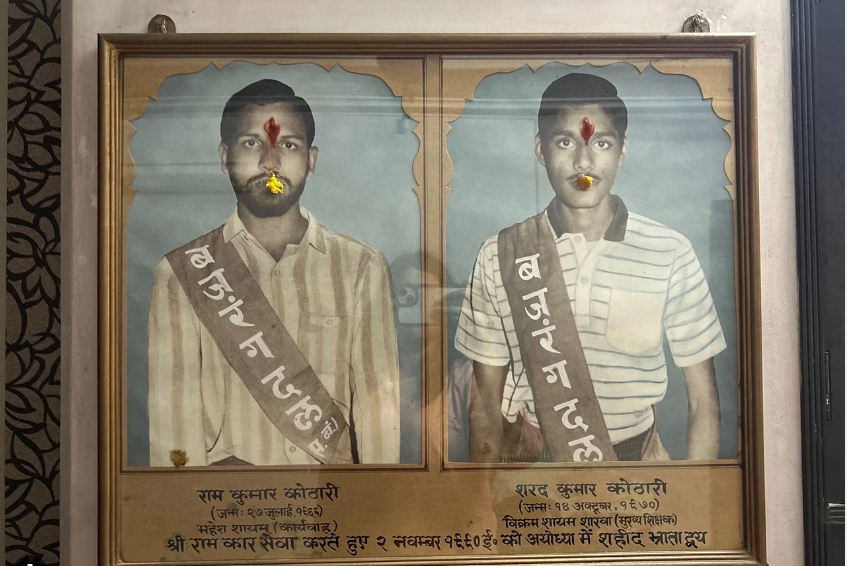 बजरंग दल
बजरंग दल
राम कुमार कोठारी
(जन्म: २७ जुलाई,
महेश शायम् (कार्यवाह)
शरद कुमार कोठारी
(जन्म: १४ अक्टूबर, १९७०)
विक्रम शायम शाखा (मुख्य शिक्षक)
श्री राम कार सेवा करते हुए २ नवम्बर १९९० ई० को अयोध्या में शहीद भ्राता द्वय